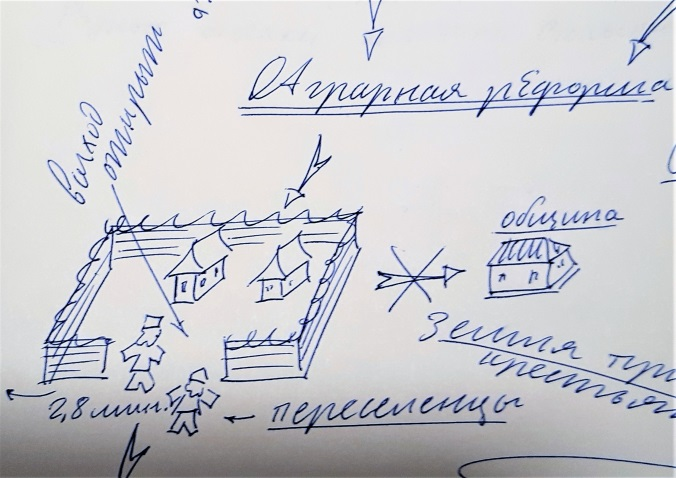 Аграрная рЕформа
выход
открыт
община
Земля при
крестьян
2,8 млн.
переселенцы